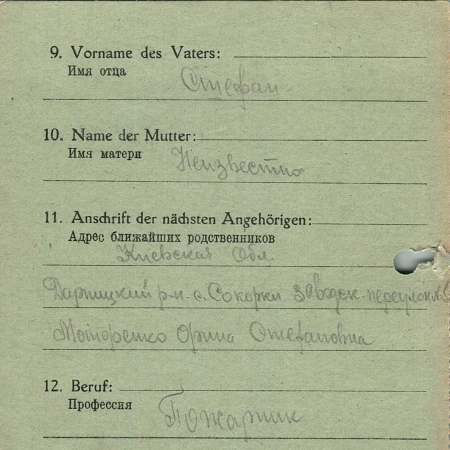 9. Vorname des Vaters:
Имя отца
Стефан
10. Name der Mutter:
Имя матери
Неизвестно
11. Anschrift der nächsten Angehörigen:
Адрес ближайших родственников
Киевская Обл.
Дарницкий р-н с. Сокорки Заводск. переулок
Орина Стефановна
12. Beruf:
Профессия
Пожарник